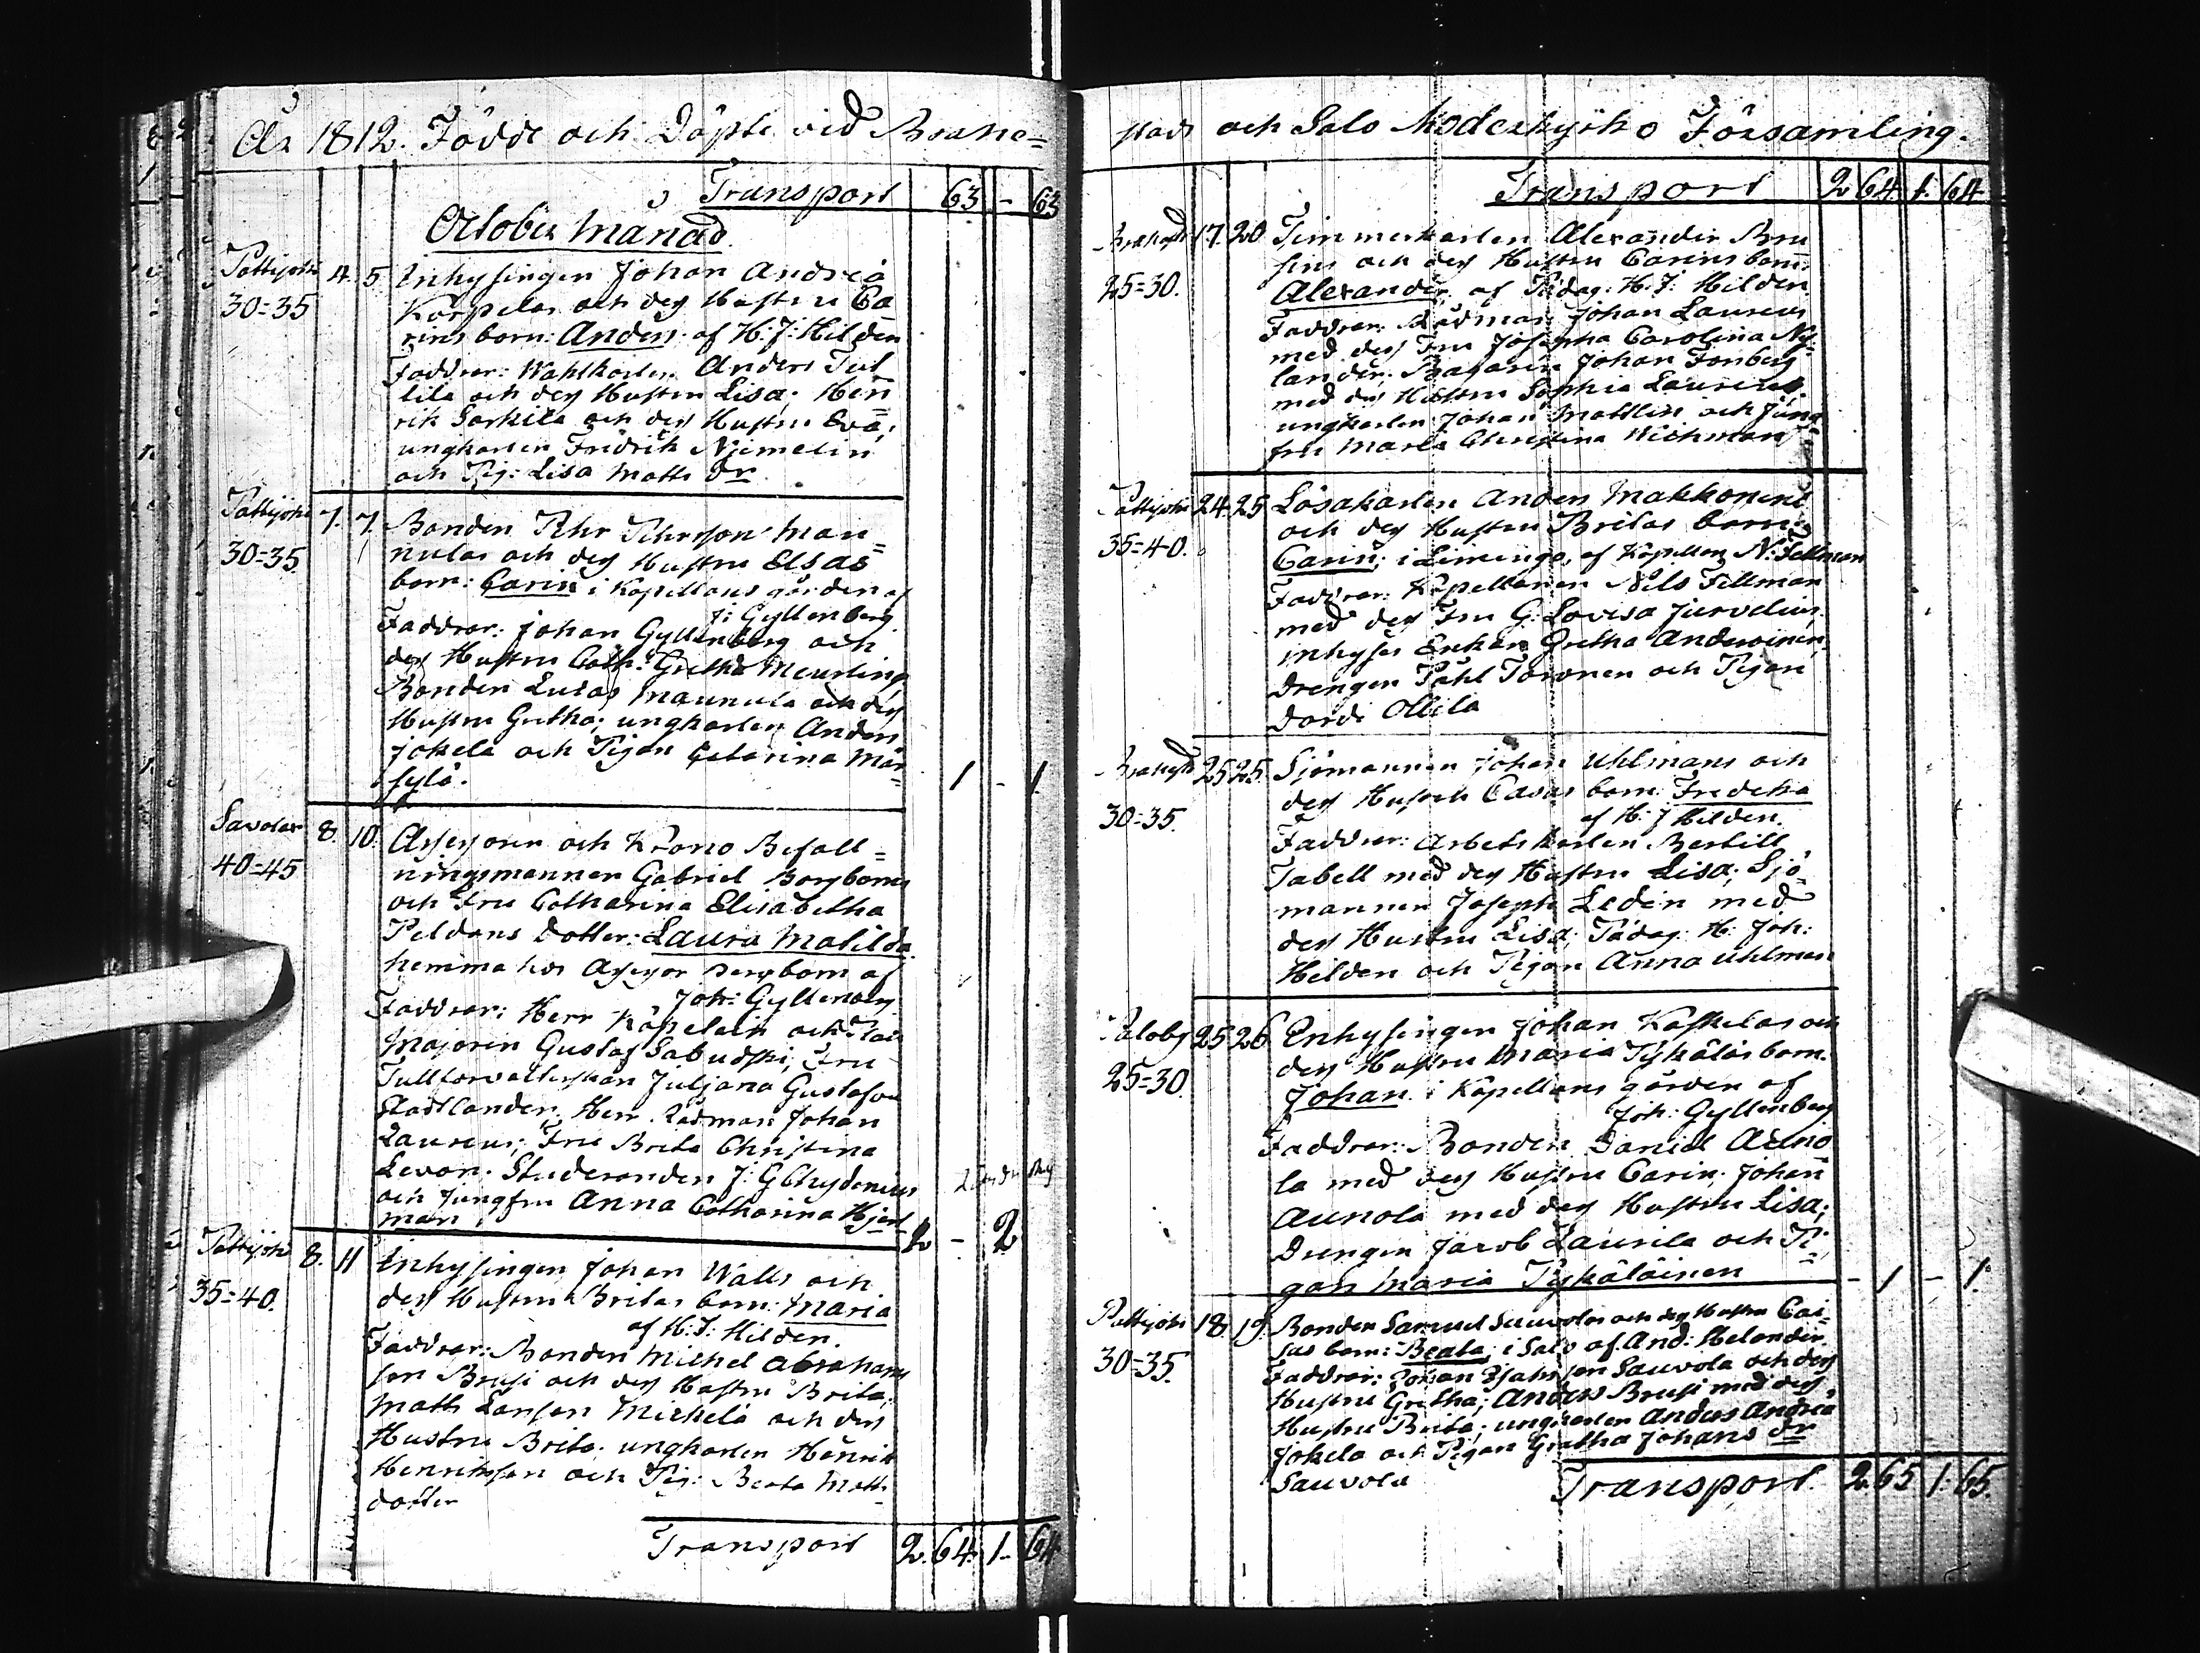 År 1812. Födde och Döpte vid Brahe=
Transport 63 - 63
October Månad.
Pattijoki 4. 5. Inhysingen Johan Andreæ
30=35 Korpelas och des Hustru Ca
rins barn: Anders af H: J: Hilden
Faddrar: Wahlkarlen Anders Tul
lila och des Hustru Lisa; Hen
rik Sarkila och des Hustru Eva;
ungkarlen Fredrik Niemelin
och Pig: Lisa Matts dr
Pattijoki 7. 7. Bonden Pehr Pehrsson Man=
30=35. nulas och des Hustru Elsas
barn: Carin i Kapellans gården af
J: Gyllenberg
Faddrar: Johan Gyllenberg och
des Hustru Cath: Gretha Meurling
Bonden Lucas Maunula och des
Hustru Gretha; ungkarlen Anders
Jokela och Pigan Catarina Mär=
sylä. 1 - 1.
Savolax 8. 10. Assessoren och Krono Befall=
40=45 ningsmannen Gabriel Borgboms
och Fru Catharina Elisabetha
Peldans Dotter: Laura Matilda
hemma hos Assessor Borgbom af
Joh: Gyllenberg
Faddrar: Herr Kapelain och
Majoren Gustaf Sabudski; Fru
Tullförvalterskan Juljana Gustafva
Stadtlander, Herr Rådman Johan
Laureus; Fru Brita Christina
Levon. Studeranden J: G Chydenius
och Jungfru Anna Catharina Hjelt
man 2 - 2
Pattijoki 8. 11 Inhysingen Johan Walls och
35=40. des Hustru Britas barn: Maria
af H: J: Hilden.
Faddrar: Bonden Michel Abrahams
son Brusi och des Hustru Brita,
Matts Larsson Mickelä och des
Hustru Brita. ungkarlen Henrik
Henriksson och Pig: Beata Matts
dotter
Transport 2. 64. 1- 64
stads och Salo Moderkyrko Församling.
Transport 2 64. 1. 64
17. 20 Timmerkarlen Alexander Bru
25=30. sins och des Hustru Carins barn:
Alexander af Pädag: H: J: Hilden.
Faddrar: Rådman Johan Laureus
med des Fru Josepha Carolina Ny=
lander; Bagaren Johan Forsberg
med des Hustru Sophia Laureus,
ungkarlen Johan Mattlin och Jung
fru Maria Christina Wichman
Pattijoki 24. 25 Lösakarlen Anders Makkonens
35=40. och des Hustru Britas barn:
Carin; i Limingo, af Kapellan N: Fellman
Faddrar: Kapellanen Nils Fellman
med des Fru G: Lovisa Jurvelius
inhyses Enkan Gretha Andersinen
Drengen Påhl Toronen och Pigan
Dordi Ollila
25 25. Sjömannen Johan Uhlmans och
30=35. des Hustru Casas barn: Fredrika
af H: J Hilden.
Faddrar: Arbetskarlen Bertill
Tabell med des Hustru Lisa; Sjö
mannen Joseph Ledin med
des Hustru Lisa; Pädag: H: Joh:
Hilden och Pigan Anna Uhlman
Saloby 25 26 Inhysingen Johan Koskelas och
25=30. des Hustru Maria Tykäläs barn.
Johan i Kapellans gården af
Joh: Gyllenberg
Faddrar: Bonden Daniel Auno
la med des Hustru Carin; Johan
Aunola med des Hustru Lisa;
Drengen Jacob Laurila och Pi=
gan Maria Tykäläinen - 1 - 1.
Pattijoki 18. 19. Bonden Samuel Sauvolas och des Hustru Cai=
30=35. sas barn: Beata i Salo af And: Helander.
Faddrar: Johan Isaksson Sauvola och des
Hustru Gretha; Anders Brusi med des
Hustru Brita; ungkarlen Anders Andreæ
Jokela och Pigan Gretha Johans dr
Sauvola Transport. 2. 65 1. 65.